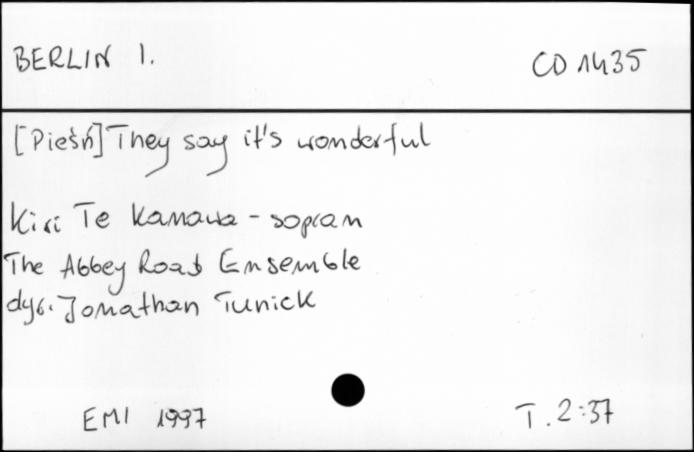 BERLIN I. CD 1435
[Pieśń] They say it's wonderful
Kiri Te Kanawa - sopran
The Abbey Road Ensemble
dyr. Jonathan Tunick
EMI 1997 T. 2:37